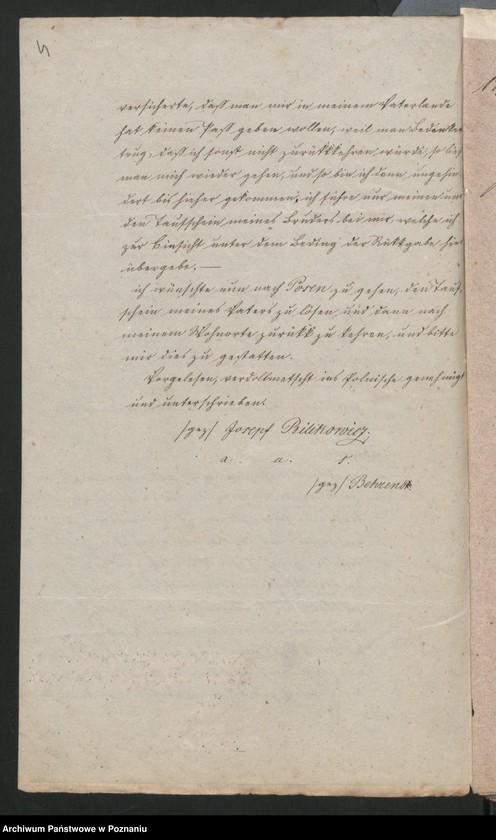 4
versicherte, daß man mir in meinem Vaterlande
hat keinen Paß geben wollen, weil man Bedenken
trug, daß ich sonst nicht zurükkehren würde, so ließ
man mich wieder gehen, und so bin ich denn ungehin
dert bis hieher gekommen; ich führe nur meinen und
den Taufschein meines Bruders bei mir welche ich
zur Einsicht unter dem Beding der Rükkgabe hier
übergebe. —
ich wünschte nun nach Posen zu gehen, den Tauf
schein meines Vaters zu lösen, und dann nach
meinem Wohnorte zurükk zu kehren, und bitte
mir dies zu gestatten.
Vorgelesen, verdollmetscht ins Polnische genehmigt
und unterschrieben.
/gez/ Josepf Bilikowicz.
a. u. s.
/gez/ Behrend
Archiwum Państwowe w Poznaniu